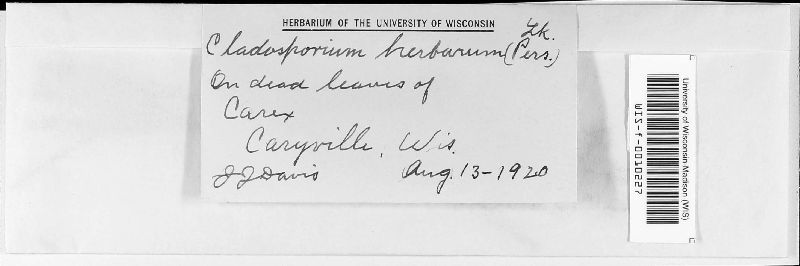 HERBARIUM OF THE UNIVERSITY OF WISCONSIN
Cladosporium herbarum (Pers.) Lk.
On dead leaves of
Carex
Caryville, Wis.
JJDavis Aug. 13-1920
University of Wisconsin Madison (WIS)
WIS-f-0010227